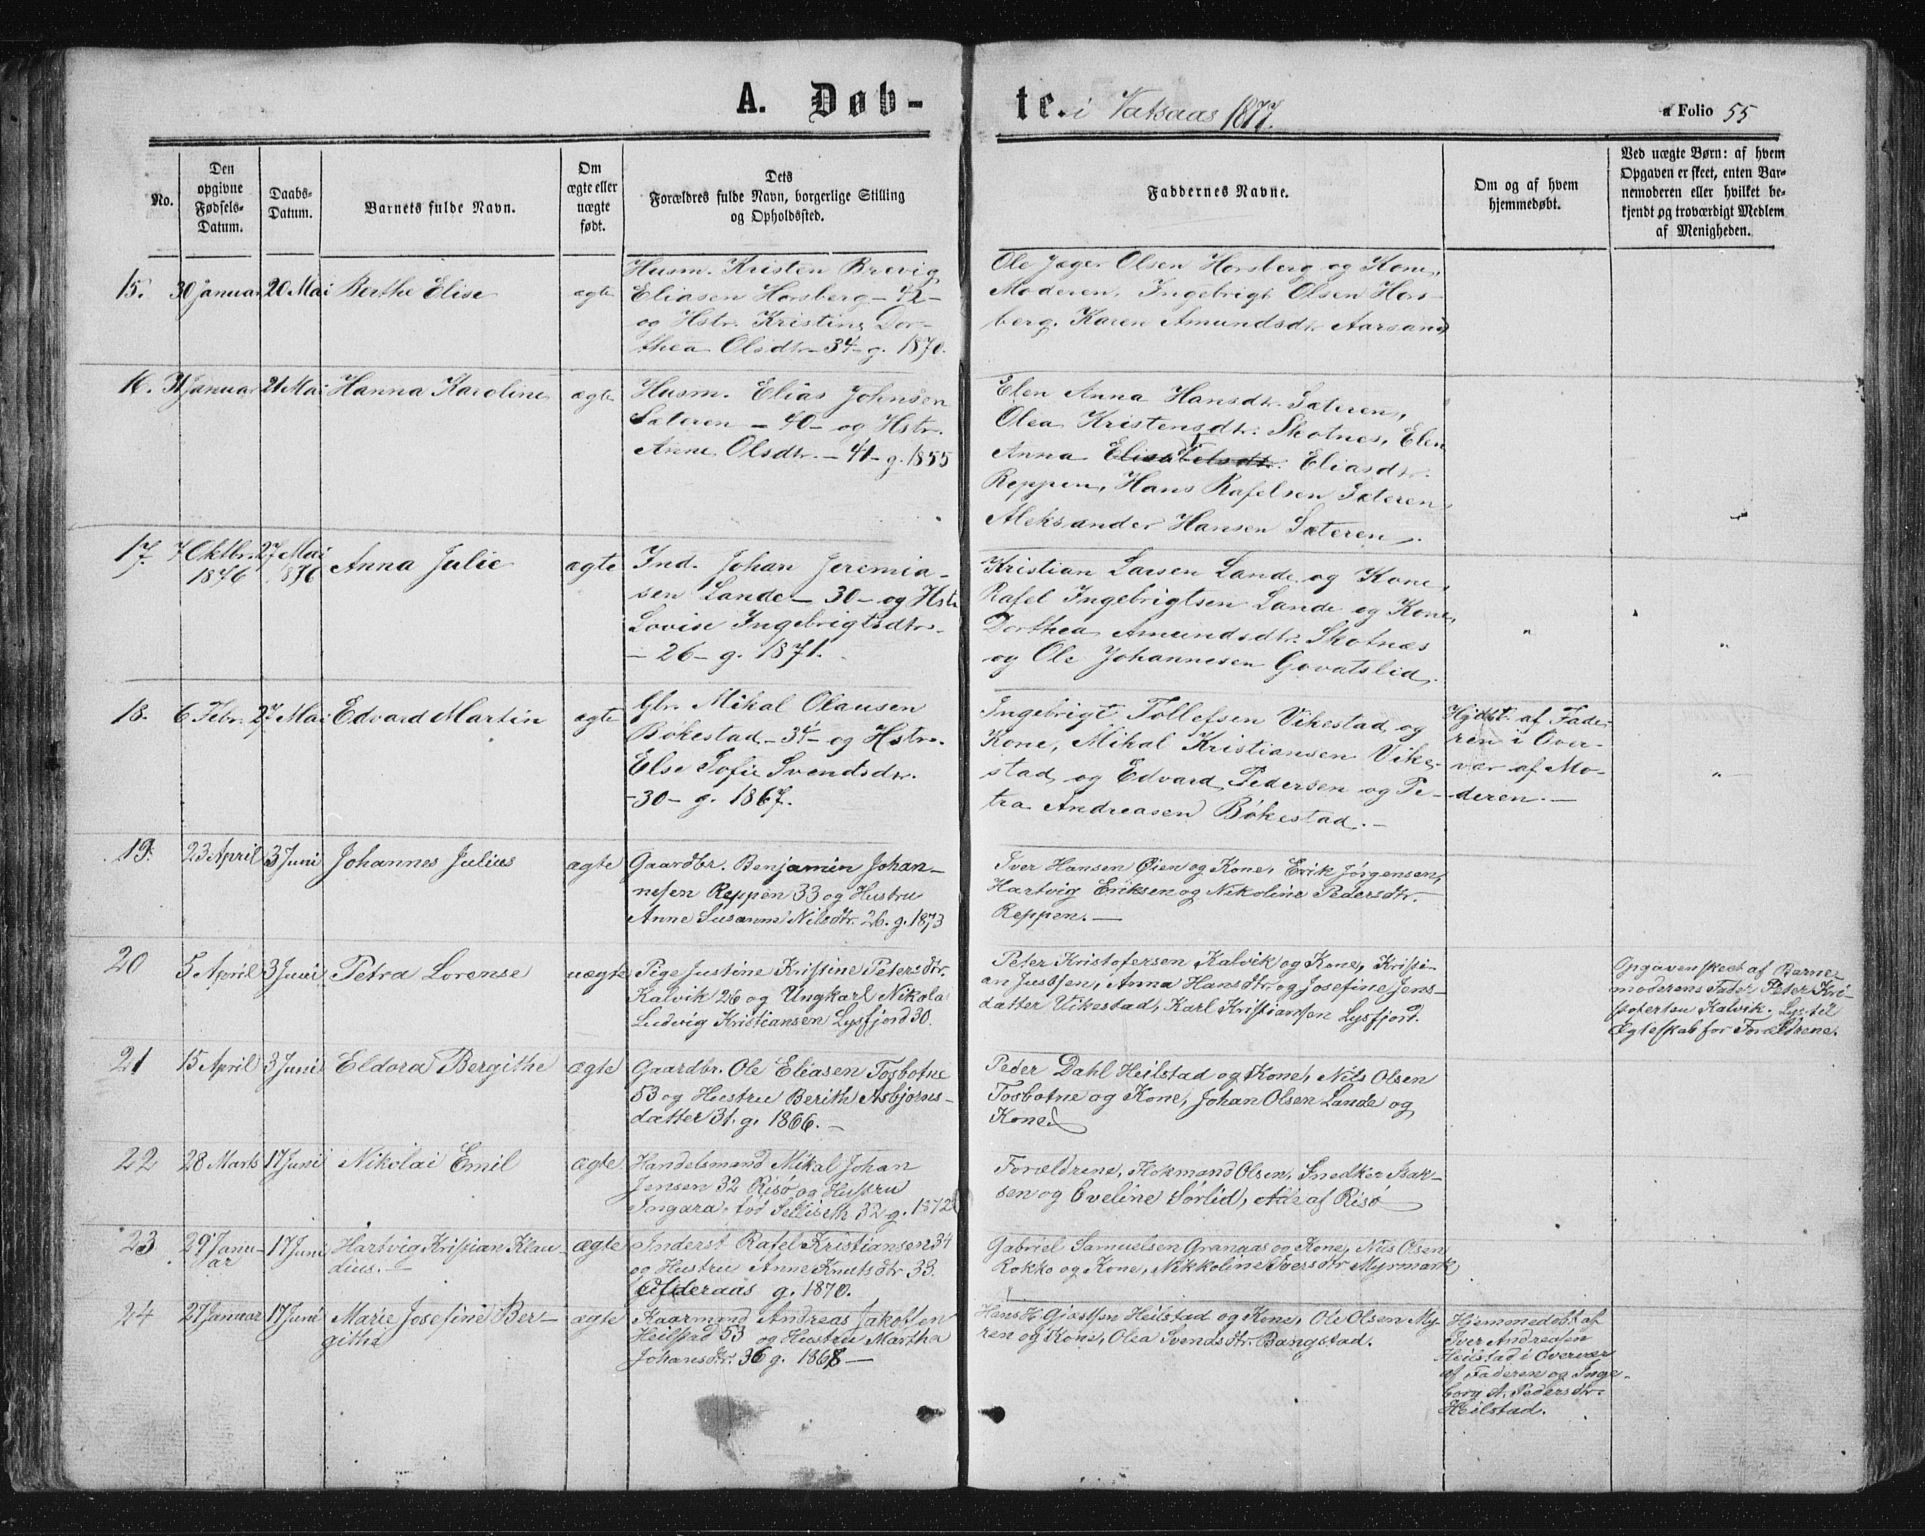 A. Døb-
te. i Vatsaas 1877.
a Folio 55
No.
Den
opgivne
Fødsels-
Datum.
Daabs-
Datum.
Barnets fulde Navn.
Om
ægte eller
uægte
født.
Dets
Forældres fulde Navn, borgerlige Stilling
og Opholdssted.
Faddernes Navne.
Om og af hvem
hjemmedøbt.
Ved uægte Børn: af hvem
Opgaven er skeet, enten Bar-
nemoderen eller hvilket be-
kjendt og troværdigt Medlem
af Menigheden.
15. 30 Januar 20 Mai Berthe Elise ægte
Husm. Kristen Brevig
Eliasen Horsberg - 42 -
og Hstr. Kristine Dor-
thea Olsdtr - 34 - g. 1870.
Ole Jæger Olsen Horsberg og Kone,
Moderen, Ingebrigt Olsen Hors-
berg. Karen Amundsdtr Aarsand
16. 31 Januar 21 Mai Hanna Karoline ægte
Husm. Elias Johnsen
Sæteren - 40 - og Hstr.
Anne Olsdtr. - 41 - g. 1855
Elen Anna Hansdtr. Sæteren,
Olea Kristensdtr. Skotnes, Elen
Anna Eliasdtr.
Reppen, Hans Rafelsen Sæteren,
Aleksander Hansen Sæteren.
17. 7 Oktbr. 27 Mai Anna Julie ægte
1876 1876
Ind. Johan Jeremia-
sen Lande - 30 - og Hstr
Lovise Ingebrigtsdtr.
- 26 - g. 1871.
Kristian Larsen Lande og Kone,
Rafel Ingebrigtsen Lande og Kone,
Dorthea Amundsdtr. Skotnæs
og Ole Johannesen Govatslid.
" "
18. 6 Febr. 27 Mai Edvard Martin ægte
Gbr. Mikal Olausen
Bøkestad - 34 - og Hstr.
Else Sofie Svendsdtr.
- 30 - g. 1867.
Ingebrigt Tollefsen Vikestad og
Kone, Mikal Kristiansen Vike-
stad og Edvard Pedersen og Pe-
tra Andreasen Bøkestad. -
Hjdbt. af Fade-
ren i Over-
vær af Mo-
deren. -
"
19. 23 April 3 Juni Johannes Julius ægte
Gaardbr. Benjamin Johan-
nesen Reppen 33 og Hustru
Anne Susanne Nilsdtr. 26. g. 1873
Iver Hansen Øien og Kone, Erik Jørgensen,
Hartvig Eriksen og Nikoline Pedersdtr.
Reppen. -
20 5 April 3 Juni Petra Lorense uægte
Pige Justine Kristine Petersdtr.
Kalvik 26 og Ungkarl Nikolai
Ludvig Kristiansen Lysfjord 30.
Peter Kristofersen Kalvik og Kone, Kristi-
an Jusbsen, Anna Hansdtr. og Josefine Jens-
datter Vikestad, Karl Kristiansen Lysfjord.
Opgaven skeet af Barne-
moderens Fader Peter Kri-
stofersen Kalvik. Lyst til
Ægteskab for Forældrene.
21 15 April 3 Juni Eldora Bergithe ægte
Gaardbr. Ole Eliasen Tosbotne
53 og Hustru Berith Asbjørns-
datter 31. g. 1866. -
Peder Dahl Heilstad og Kone, Nils Olsen
Tosbotne og Kone, Johan Olsen Lande og
Kone
22 28 Marts 17 Juni Nikolai Emil ægte
Handelsmand Mikal Johan
Jensen 32 Risø og Hustru
Ingara. fød Sellseth 32 g. 1872
Forældrene, Snedker Isak-
sen og Eveline Sørlid, Alle af Risø
23 29 Janu- 17 Juni Hartvig Kristian Klau- ægte
ar dius. -
Inderst Rafel Kristiansen 34
og Hustru Anne Knutsdtr 33.
g. 1870.
Gabriel Samuelsen Granaas og Kone, Nils Olsen
Rokko og Kone, Nikkoline Iversdtr Myrmark
24 27 Januar 17 Juni Marie Josefine Ber- ægte
githe
Kaarmand Andreas Jakobsen
Heilstad 53 og Hustru Martha
Johansdtr. 36 g. 1868 -
Hans H. Gjæstsen Heilstad og Kone, Ole Olsen My-
ren og Kone, Olea Svendsdtr. Bangstad.
Hjemmedøbt af
Iver Andreasen
Heilstad i Overvær
af Faderen og Inge-
borg A. Pedersdtr.
Heilstad.